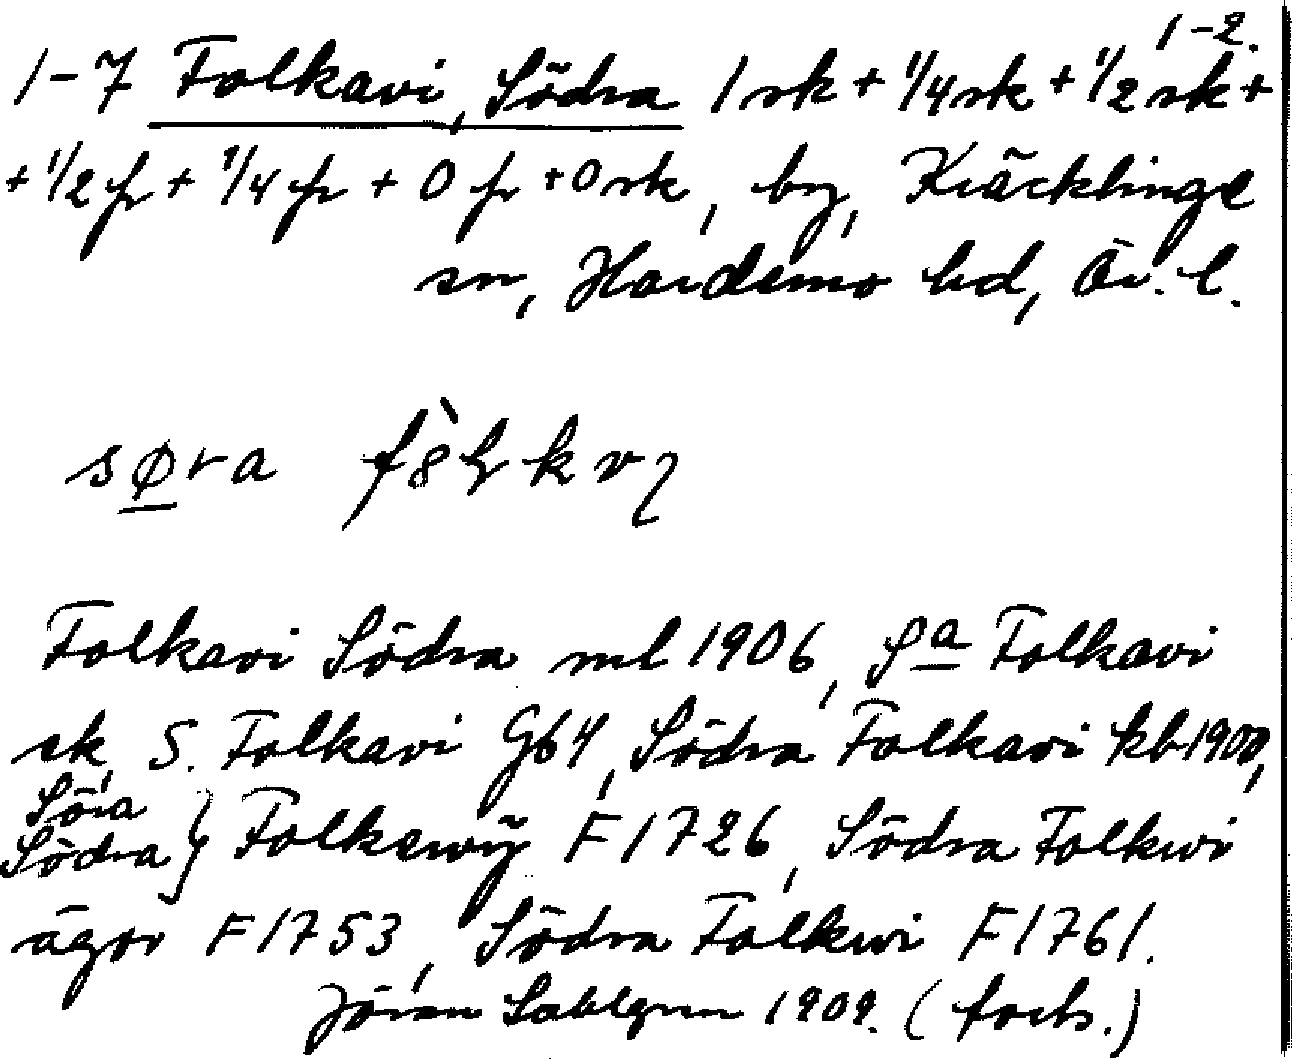 1-2.
1-7 Folkavi, Södra 1 sk + 1/4 sk + 1/2 sk +
+ 1/2 fr + 1/4 fr + 0 fr + 0 sk, by, Kräcklinge
sn, Hardemo hd, Ör. l.
Folkavi Södra ml 1906, Sa Folkavi
sk, S. Folkavi G64, Södra Folkavi kb 1900,
Söra
Södra } Folkewÿ F 1726, Södra Folkwi
ägor F 1753, Södra Folkwi F 1761.
Jöran Sahlgren 1909. (forts.)